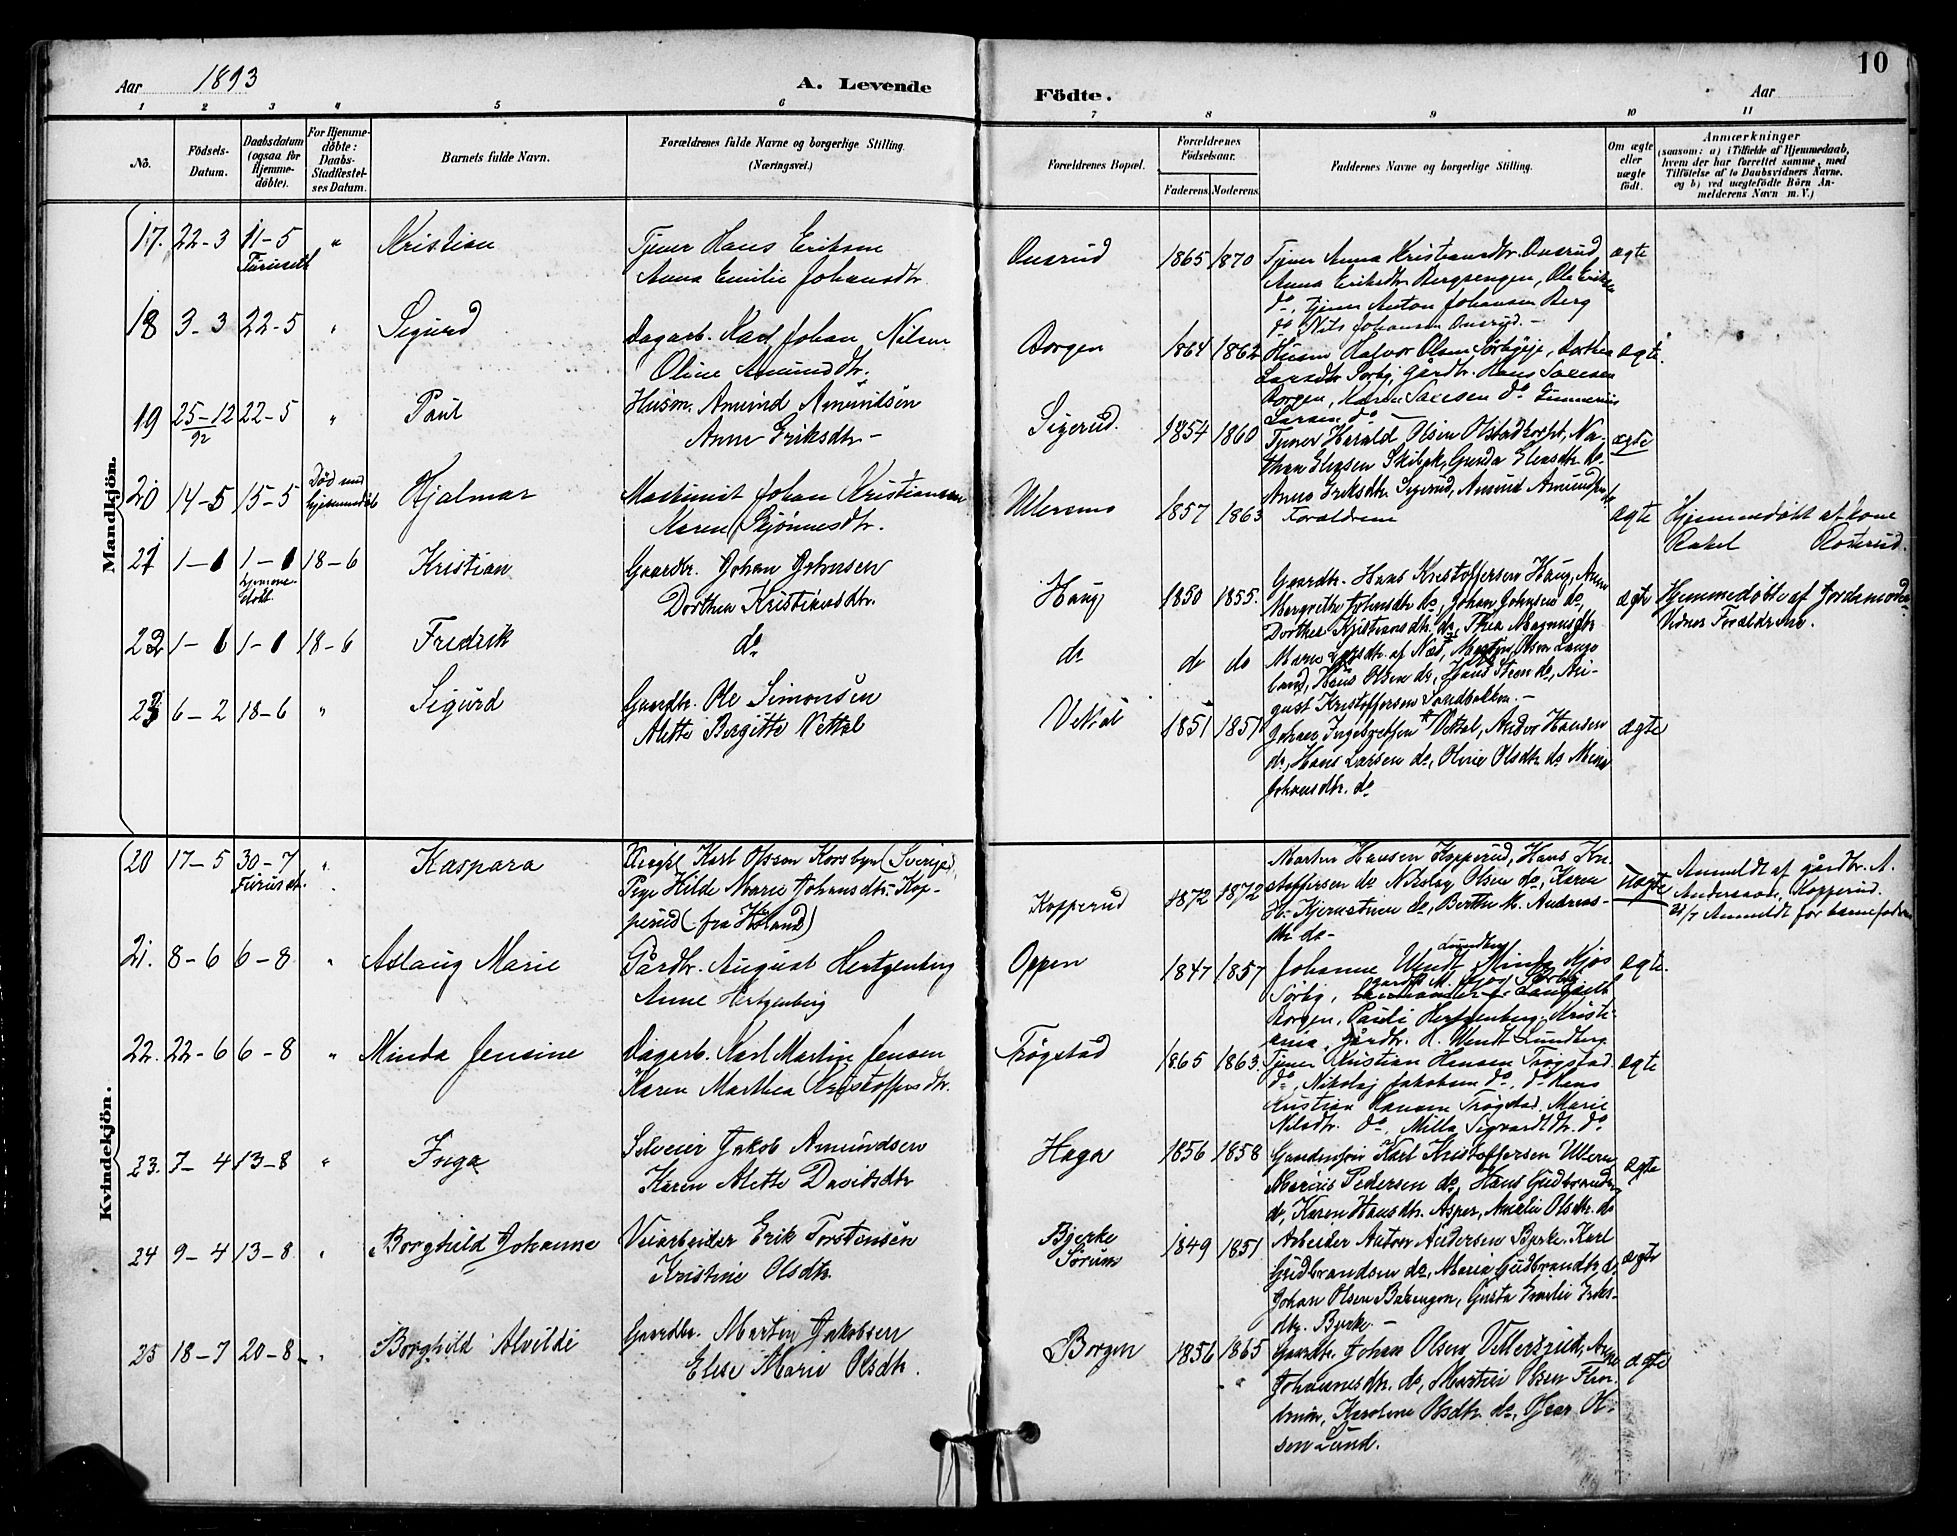 Aar 1893
A. Levende
Födte.
Aar
10
1 2 3 4 5 6 7 8 9 10 11
No.
Födsels-
Datum.
Daabsdatum
(ogsaa for
Hjemme-
döbte).
For Hjemme-
döbte:
Daabs-
Stadfæstel-
ses Datum.
Barnets fulde Navn.
Forældrenes fulde Navne og borgerlige Stilling.
(Næringsvei.)
Forældrenes Bopæl.
Forældrenes
Födselsaar.
Faderens. Moderens.
Faddernes Navne og borgerlige Stilling.
Om ægte
eller
uægte
födt.
Anmærkninger
(saasom: a) i Tilfælde af Hjemmedaab,
hvem der har forrettet samme, med
Tilföielse af to Daabsvidners Navne,
og b) ved uægtefödte Börn An-
melderens Navn m. V.)
Mandkjön.
17. 22-3 11-5 " Kristian Tjener Hans Eriksen Onsrud 1865 1870 Tjener Anna Kristiansdtr. Onsrud ægte
Furuset
Anna Emilie Johansdtr.
Anna Eriksdtr. Bergsengen, Ole Eriksen
do, tjener Anton Johansen Berg
do Nils Johansen Onsrud.-
18 3-3 22-5 " Sigurd Dagarb. Karl Johan Nilsen Borgen 1864 1862 Husm Halvor Olsen Sörbyeje, Dorthea ægte.
Oline Amunddtr.
Larsdtr Sörby, gårdbr. Hans Larsen
Borgen, Karen Larsen do Gunnerius
Larsen do
19 25-12/92 22-5 " Paul Husm. Amund Amundsen Sigerud. 1854 1860 Tjener Harald Olsen Olstadkorpt, Na- ægte
Anne Eriksdtr-
than Eliasen Skibæk, Gunda Eliasdtr do
Anne Eriksdtr. Sigerud, Amund Amundsen do
20 14-5 15-5 Död som
hjemmedöbt Hjalmar Maskinist Johan Kristiansen 1857 1863 Forældrene ægte Hjemmedöbt af kone
Karen
Rakel
21 1-1 1-1 18-6 Kristian Gaardbr. Johan Johnsen Haug 1850 1855. Gaardbr. Hans Kristoffersen Haug, Anne ægte Hjemmedöbt af Jordemoder
hjemme-
döbt.
Dorthea Kristiansdtr.
Margrethe Johnsdtr do, Johan Johnsen do,
Vidner Forældrene.
Dorthea Kristiansdtr. do, Thea Magnusdtr
22 1-1 1-1 18-6 Fredrik do do do do
Hans Olsen do, Hans Steen do, Au-
gust Kristoffersen Sandbakken.-
23 6-2 18-6 " Sigurd Gaardbr. Ole Simonsen Vettal 1851 1851 Johan Ingebretsen Vettal, Andor Hansen ægte
Alette Bergitte Vettal
do, Hans Larsen do, Oline Olsdtr do Mina
Johansdtr. do
Kvindekjön.
20 17-5 30-7 " Kaspara Ungk. Karl Olsson Korsbyn (Sverige), Kopperud 1872 1872 Martin Hansen Kopperud, Hans Kri- uægte Anmeldt af gårdbr. A.
Furuset.
Pige Hilde Marie Johansdtr. Kop-
perud (fra Höland)
stoffersen do Nikolay Olsen do, Karen
H. Kjernstuen do, Berthe M. Andreas-
dtr do-
Anderson, Kopperud.
Anmeldt for barnefaderen
21. 8-6 6-8 " Aslaug Marie Gårdbr. August Hertzenberg Oppen 1847 1857 Johanne Wendt Lundby Minda Kjos ægte.
Anne Hertzenberg
Sörby,
Borgen, Pauli Hertzenberg, Kristi-
ania, gårdbr. H. Wendt Lundberg
22. 22-6 6-8 " Minda Jensine Dagarb. Karl Martin Jensen Trögstad 1865 1863. Tjener Kristian Hansen Trögstad. ægte
Karen Marthea Kristoffersdtr.
do, Nikolaj Jakobsen do, do Hans
Kristian Hansen Trögstad, Marie
Nilsdtr. do, Milla Sigvardtdtr. do
23. 7-4 13-8 " Inga Selveier Jakob Amundsen Haga 1856 1858 Gaardmand Karl Kristoffersen Ulleren ægte
Karen Alette Davidsdtr
Marius Pedersen do, Hans Gudbrandsen
do, Karen Hansdtr. Asper, Amalie Olsdtr. do
24 9-4 13-8 " Borghild Johanne Veiarbeider Erik Torstensen Bjerke
Sörum 1849 1851 Arbeider Anton Andersen Bjerke. Karl ægte
Kristine Olsdtr.
Gudbrandsen do, Maria Gudbrandtdtr. do
Johan Olsen Barengen, Gusta Emilie Eriks-
dtr. Bjerke.-
25 18-7 20-8 " Borghild Alvilde Gaardbr. Martin Jakobsen Borgen 1856 1865 Gaardbr. Johan Olsen Vetterserud, Anne ægte
Elise Marie Olsdtr.
Johannesdtr. do, Martin Olsen
Karoline Olsdtr. do, Ol-
sen Lund.